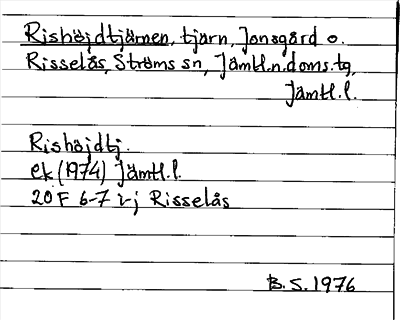 Rishöjdtjärnen, tjärn, Jonsgård o.
Risselås, Ströms sn, Jämtl.n.doms.tg,
Jämtl.l.
Rishöjdtj.
ek. (1974) Jämtl.l.
20F 6-7 i-j Risselås
B.S. 1976